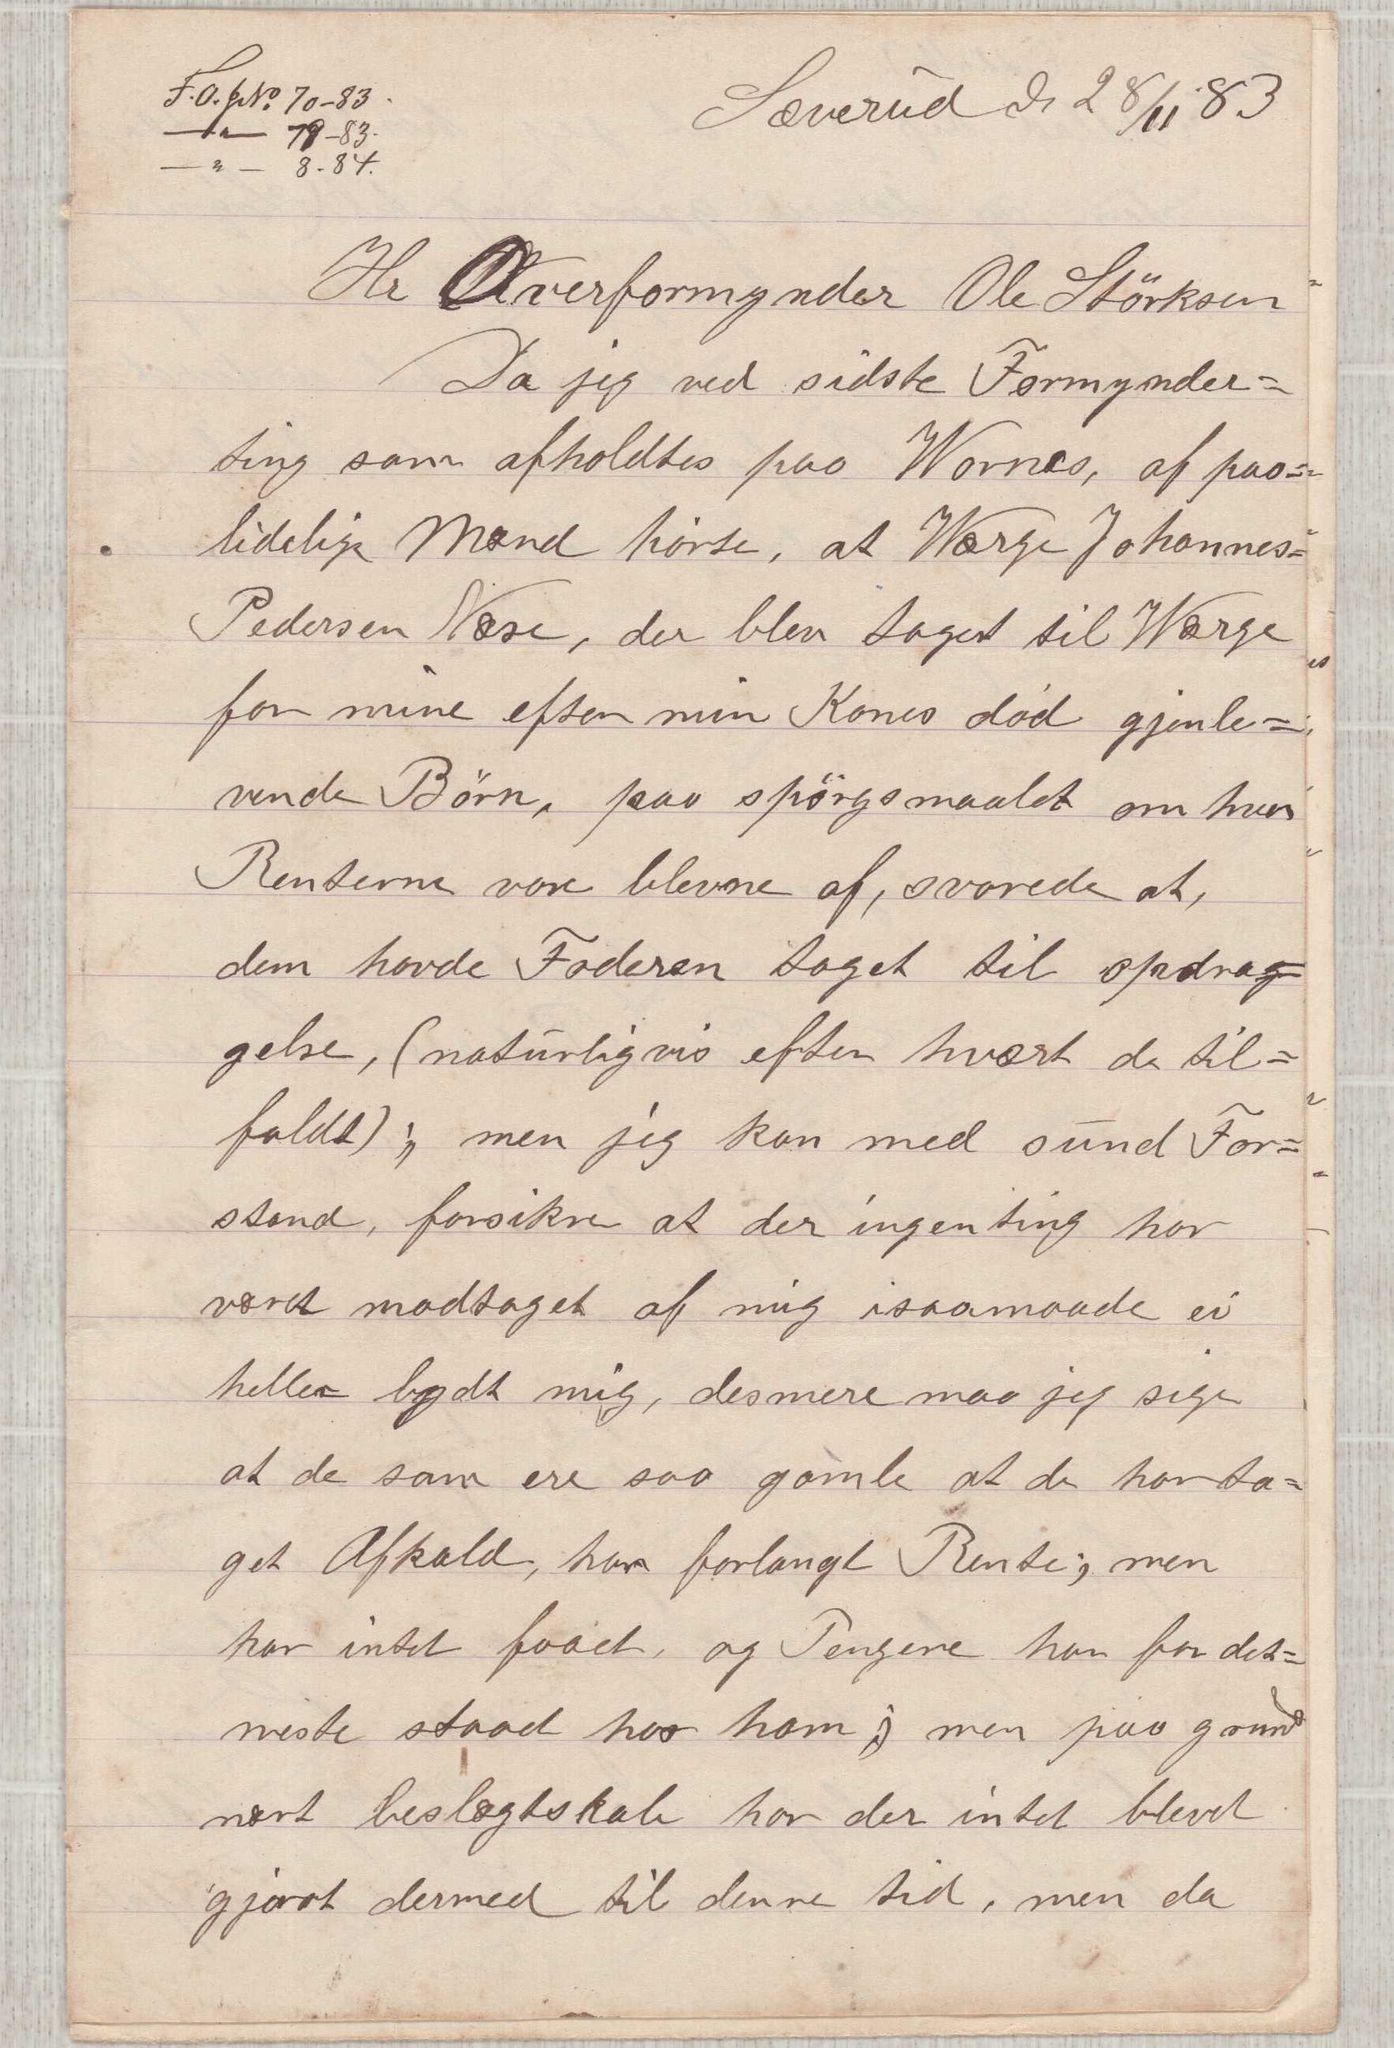 F.O. pNo. 70-83.
— " — 79-83.
— " — 8-84.
Sæverud d. 28/11 83
Hr Overformynder Ole Störksen
Da jeg ved sidste Formynder=
ting som afholdtes paa Wornes, af paa=
lidelige Mænd hörte, at Wærge Johannes=
Pedersen Næse, der blev taget til Wærge
for mine efter min Kones död gjenle=
vende Börn, paa spörgsmaalet om hvor
Renterne vare blevne af, svarede at,
dem havde Faderen taget til opdrag=
gelse, (naturligvis efter hvært de til=
faldt); men jeg kan med sund For=
stand, forsikre at der ingenting har
været modtaget af mig isaamaade ei
heller bydt mig, desmere maa jeg sige
at de som ere saa gamle at de har ta=
get Afkald, har forlangt Rente; men
har intet faaet, og Pengene har for det=
meste staaet hos ham; men paa grund
nært beslægtskab har der intet blevet
gjort dermed til denne tid, men da